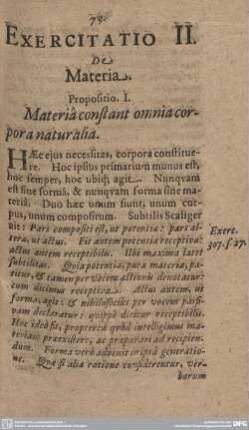 79.
EXERCITATIO II.
De
Materia.
Propositio. I.
Materiâ constant omnia cor-
pora naturalia.
HÆc ejus necessitas, corpora constitue-
re. Hoc ipsius primarium munus est,
hoc semper, hoc ubiq; agit. Nunqvam
est sine formâ, & nunqvam forma sine ma-
teriâ. Duo hæc unum fiunt, unum cor-
pus, unum compositum. Subtilis Scaliger
ait: Pars compositi est, ut potentia: pars al-
tera, ut actus. Fit autem potentia receptiva:
actus autem receptibilis. Ubi maxima latet
subtilitas. Quia potentia, puta materia, pa-
titur, & tamen per vocem activam denotatur:
cum dicimus receptiva. Actus autem, ut
forma, agit: & nihilominus per vocem passi-
vam declaratur: quippe dicitur receptibilis.
Hoc ideo fit, propterea qvod intelligimus ma-
teriam praeexistere, ac praeparari ad recipien-
dum. Forma verò advenit in ipsâ generatio-
ne. Quæ si alia ratione considerentur, ver-
borum
Exerc.
307. s. 27.